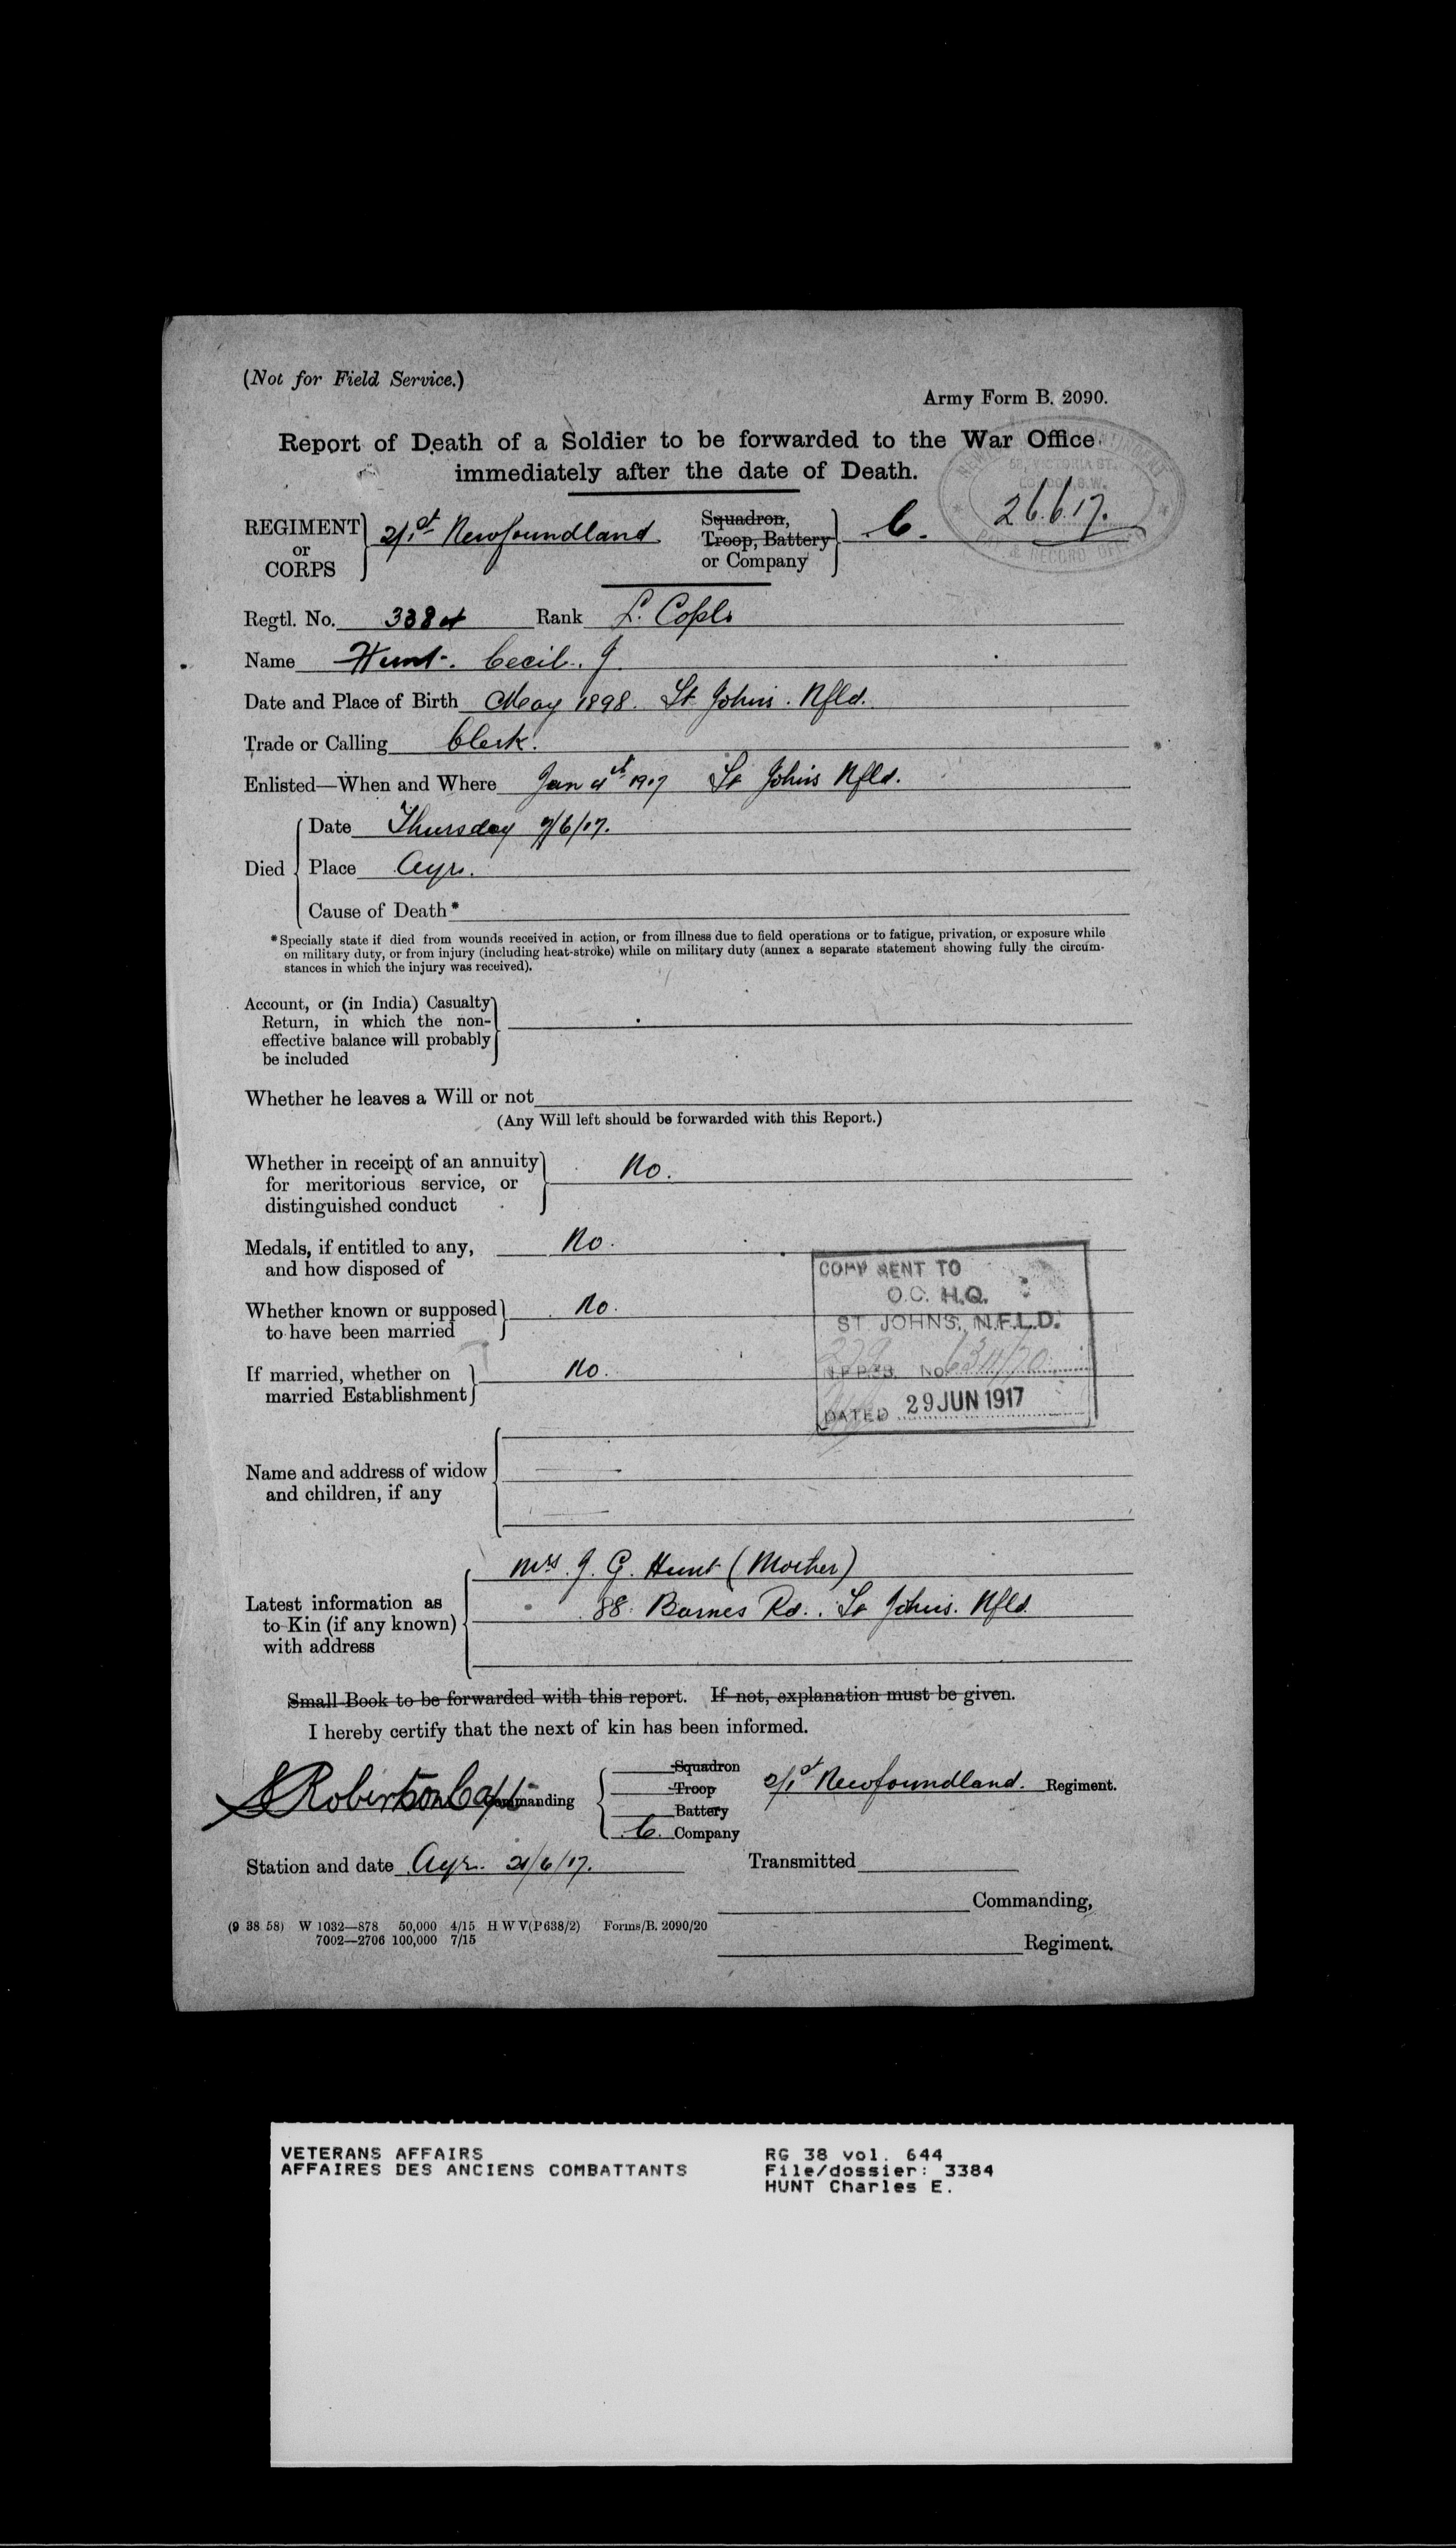 (Not for Field Service.)
Army Form B. 2090.
Report of Death of a Soldier to be forwarded to the War Office
immediately after the date of Death.
58, VICTORIA ST.
LONDON, S.W.
PAY & RECORD OFFICE
26.6.17.
REGIMENT or CORPS 2/1st Newfoundland Squadron, Troop, Battery or Company C.
Regtl. No. 3384 Rank L. Copl.
Name Hunt. Cecil. J.
Date and Place of Birth May 1898. St Johns. Nfld.
Trade or Calling Clerk.
Enlisted—When and Where Jan 4th 1917 St Johns Nfld.
Died
Date Thursday 7/6/17.
Place Ayr.
Cause of Death*
*Specially state if died from wounds received in action, or from illness due to field operations or to fatigue, privation, or exposure while
on military duty, or from injury (including heat-stroke) while on military duty (annex a separate statement showing fully the circum-
stances in which the injury was received).
Account, or (in India) Casualty
Return, in which the non-
effective balance will probably
be included
Whether he leaves a Will or not
(Any Will left should be forwarded with this Report.)
Whether in receipt of an annuity
for meritorious service, or
distinguished conduct
No.
Medals, if entitled to any,
and how disposed of
No.
Whether known or supposed
to have been married
No.
If married, whether on
married Establishment
No.
COPY SENT TO
O.C. H.Q.
ST JOHNS, N.F.L.D.
No
DATED 29 JUN 1917
Name and address of widow
and children, if any
Latest information as
to Kin (if any known)
with address
Mrs. J. G. Hunt (Mother)
88 Barnes Rd., St Johns. Nfld.
Small Book to be forwarded with this report. If not, explanation must be given.
I hereby certify that the next of kin has been informed.
Robertson Capt Commanding
Squadron
Troop
Battery
C. Company
2/1st Newfoundland. Regiment.
Station and date Ayr. 21/6/17. Transmitted
Commanding,
(9 38 58) W 1032—878 50,000 4/15 H W V(P638/2) Forms/B. 2090/20
7002—2706 100,000 7/15
Regiment.
VETERANS AFFAIRS
AFFAIRES DES ANCIENS COMBATTANTS
RG 38 vol. 644
File/dossier: 3384
HUNT Charles E.